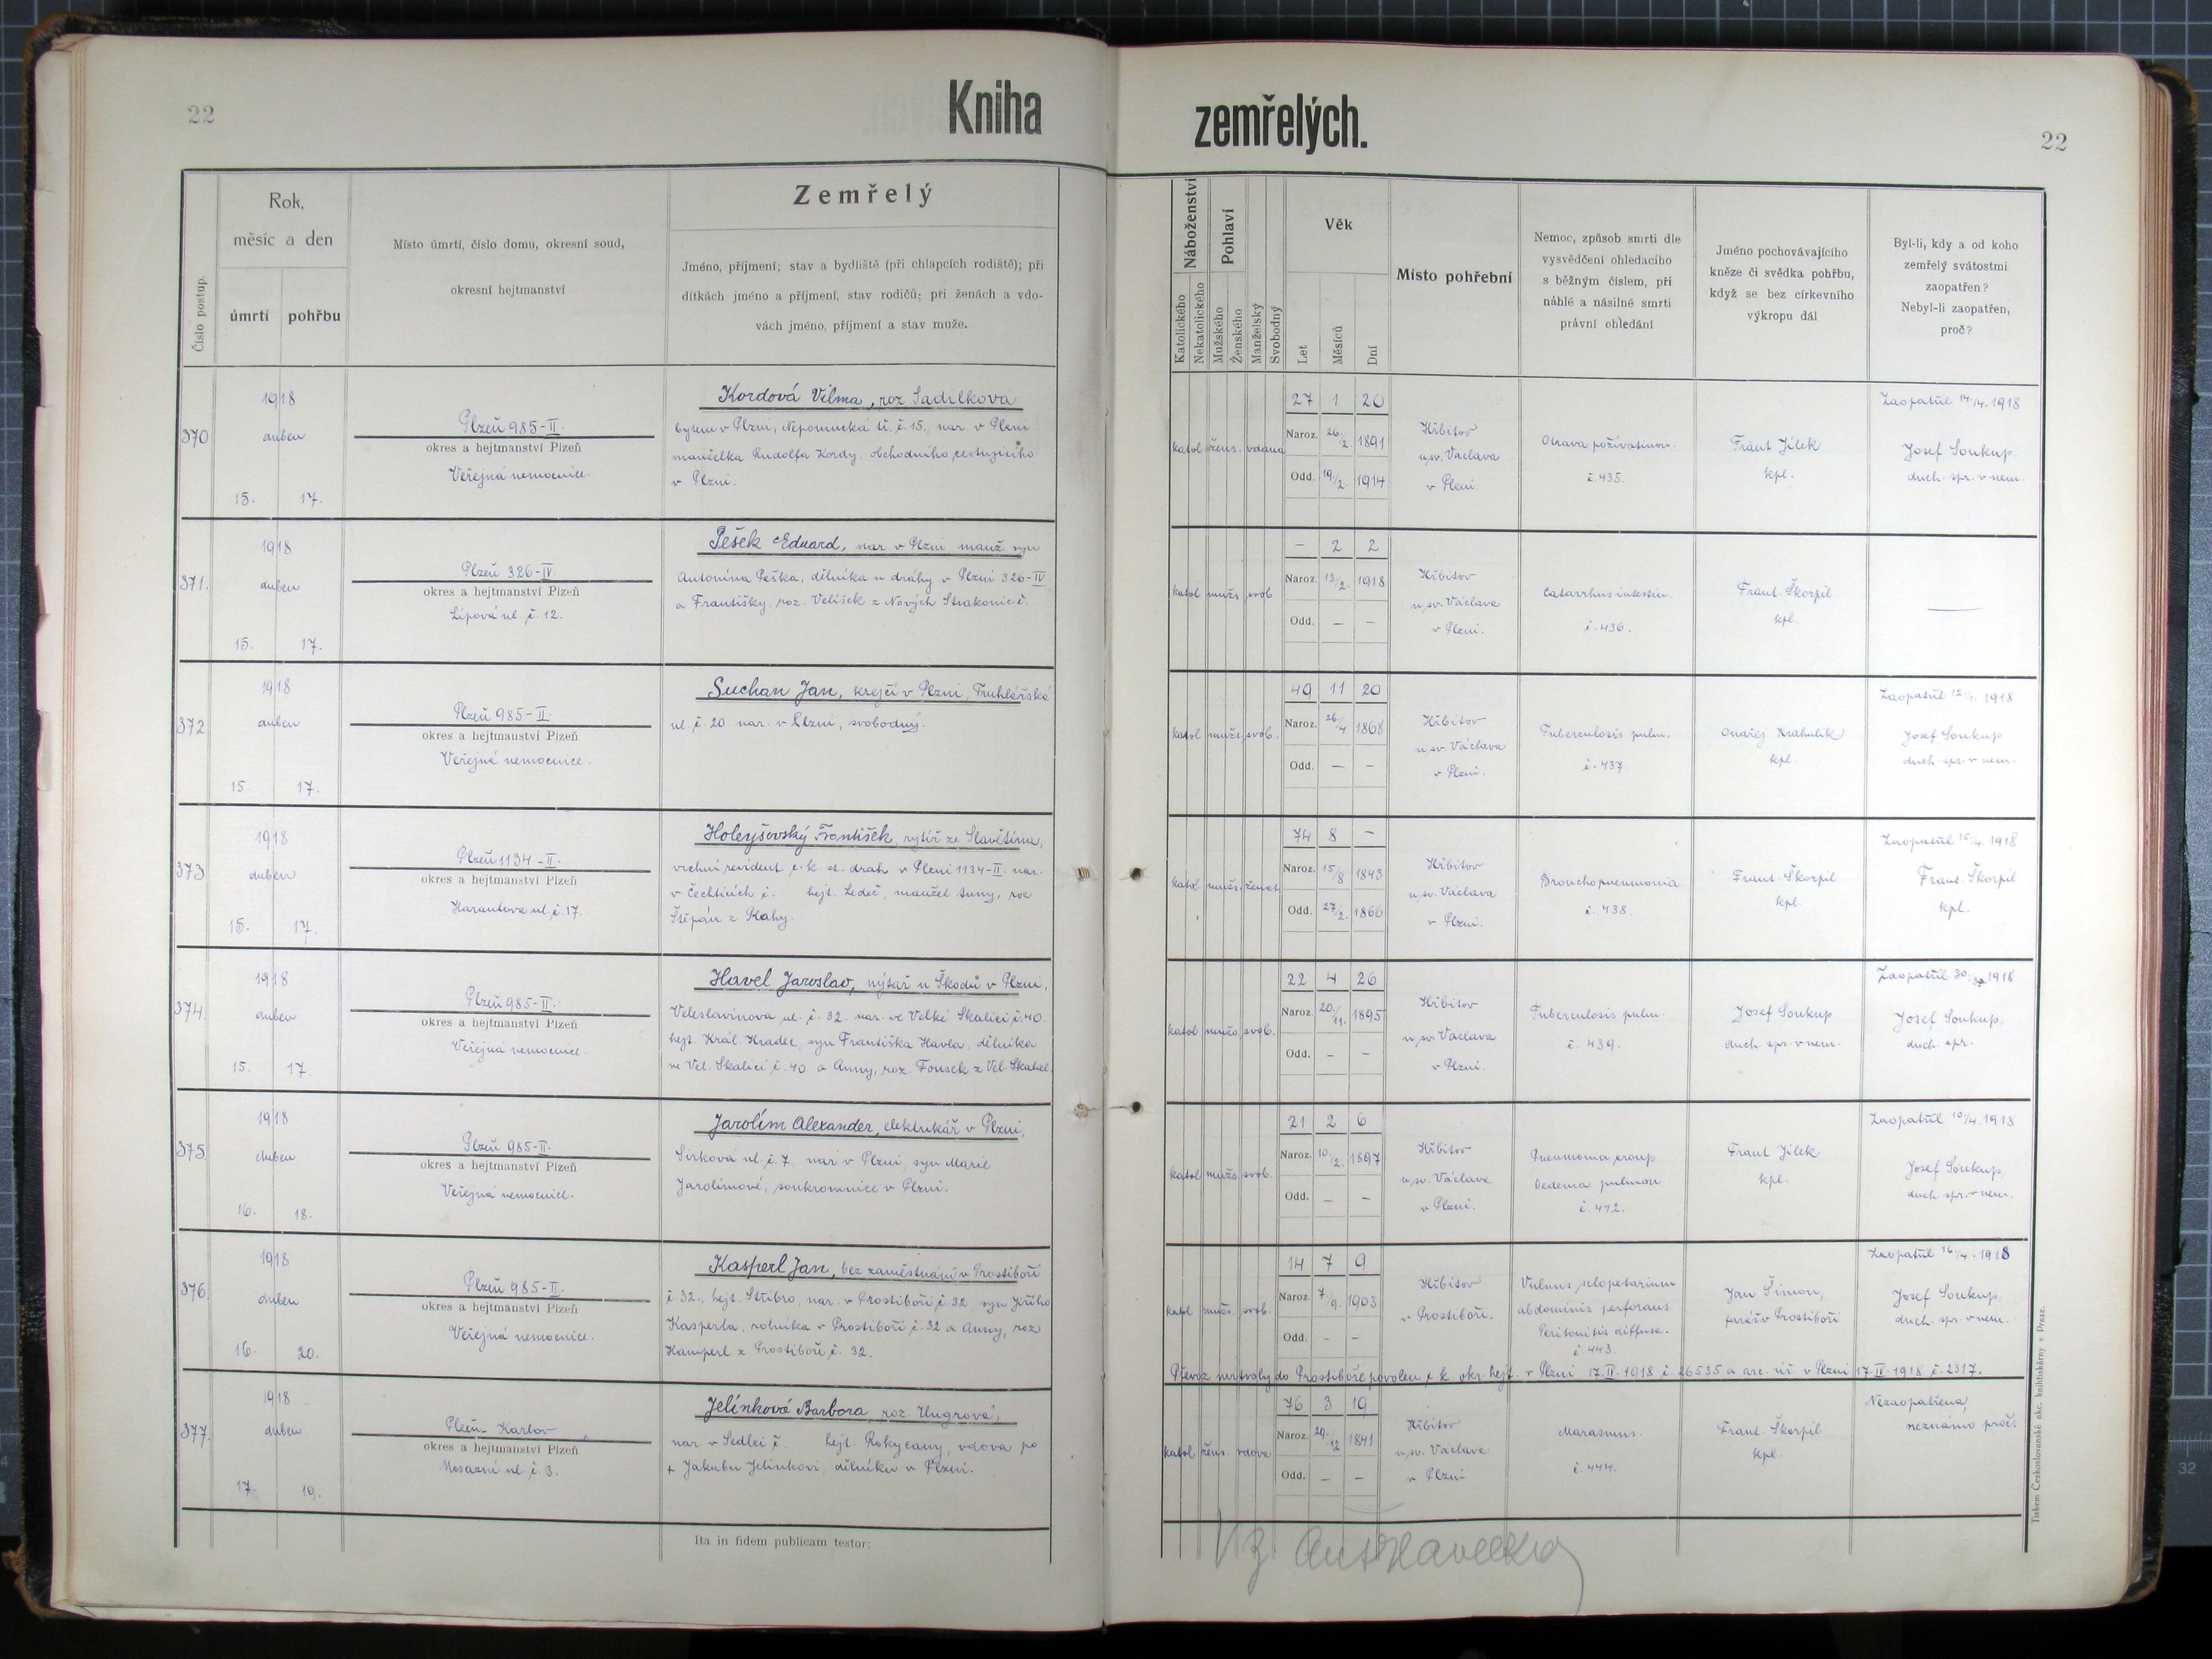 22
Kniha
zemřelých.
22
Číslo postup.
Rok,
měsíc a den
úmrtí
pohřbu
Místo úmrtí, číslo domu, okresní soud,
okresní hejtmanství
Zemřelý
Jméno, příjmení; stav a bydliště (při chlapcích rodiště); při
dítkách jméno a příjmení, stav rodičů; při ženách a vdo-
vách jméno, příjmení a stav muže.
Náboženství
Katolického
Nekatolického
Pohlaví
Mužského
Ženského
Manželský
Svobodný
Věk
Let
Měsíců
Dní
Místo pohřební
Nemoc, způsob smrti dle
vysvědčení ohledacího
s běžným číslem, při
náhlé a násilné smrti
právní ohledání
Jméno pochovávajícího
kněze či svědka pohřbu,
když se bez církevního
výkropu dál
Byl-li, kdy a od koho
zemřelý svátostmi
zaopatřen?
Nebyl-li zaopatřen,
proč?
370
1918
duben
15. 17.
Plzeň 985-II.
okres a hejtmanství Plzeň
Veřejná nemocnice.
Kordová Vilma, roz Sadílková
bytem v Plzni, Nepomucká tř. č. 15., nar. v Plzni
manželka Rudolfa Kordy, obchodního cestujícího
v Plzni.
katol žens. vdaná
27 1 20
Naroz. 26./2. 1891
Odd. 19/2. 1914
Hřbitov
u sv. Václava
v Plzni.
Otrava poživatinou.
č. 435.
Frant Jílek
kpl.
Zaopatřil 14./4. 1918
Josef Soukup.
duch. spr. v nem.
371.
1918
duben
15. 17.
Plzeň 326-IV
okres a hejtmanství Plzeň
Lipová ul. č. 12.
Pešek Eduard, nar v Plzni manž. syn
Antonína Peška, dělníka u dráhy v Plzni 326-IV
a Františky, roz. Velíšek z Nových Strakonic č.
katol mužs. svob
- 2 2
Naroz. 13/2. 1918
Odd. - -
Hřbitov
u sv. Václava
v Plzni.
Catarrhus intestin.
č. 436.
Frant. Škorpil
kpl.
372
1918
duben
15. 17.
Plzeň 985-II.
okres a hejtmanství Plzeň
Veřejná nemocnice.
Suchan Jan, krejčí v Plzni, Truhlářská
ul. č. 20 nar. v Plzni, svobodný.
katol mužs. svob.
49 11 20
Naroz. 26./4 1868
Odd. - -
Hřbitov
u sv. Václava
v Plzni.
Tuberculosis pulm.
č. 437
Ondřej Krahulík
kpl.
Josef Soukup
duch. spr. v nem.
373
1918
duben
15. 17.
Plzeň 1134-II.
okres a hejtmanství Plzeň
Harantova ul. č. 17.
Holeyšovský František, rytíř ze Slavětína,
vrchní revident c. k. st. drah v Plzni 1134-II. nar.
v Čechticích č. hejt. Ledeč, manžel Anny, roz
Štěpán z Prahy.
katol mužs. ženat
74 8 -
Naroz. 15/8 1843
Odd. 27/2. 1866
Hřbitov
u sv. Václava
v Plzni.
Bronchopneumonia.
č. 438.
Frant. Škorpil
kpl
Zaopatřil 15/4. 1918
Frant. Škorpil
kpl.
374.
1918
duben
15. 17
Plzeň 985-II.
okres a hejtmanství Plzeň
Veřejná nemocnice.
Havel Jaroslav, nýtař u Škodů v Plzni,
Veleslavínova ul. č. 32. nar. ve Velké Skalici č. 40.
hejt. Král. Hradec, syn Františka Havla, dělníka
ve Vel. Skalici č. 40. a Anny, roz. Fousek z Vel. Skalice.
katol mužs. svob.
22 4 26
Naroz. 20./11. 1895
Odd. - -
Hřbitov
u sv. Václava
v Plzni.
Tuberculosis pulm.
č. 439.
Josef Soukup
duch. spr. v nem.
Josef Soukup,
duch. spr.
375
1918
duben
16. 18.
Plzeň 985-II.
okres a hejtmanství Plzeň
Veřejná nemocnice.
Jarolím Alexander, elektrikář v Plzni,
Sirková ul. č. 7, nar v Plzni, syn Marie
Jarolímové, soukromnice v Plzni.
katol mužs. svob.
21 2 6
Naroz. 10./2. 1897
Odd. - -
Hřbitov
u sv. Václava
v Plzni.
Pneumonia croup
Oedema pulmon
č. 442.
Frant Jílek
kpl.
Zaopatřil 10/4. 1918
Josef Soukup,
duch. spr. v nem.
376.
1918
duben
16. 20.
Plzeň 985-II.
okres a hejtmanství Plzeň
Veřejná nemocnice.
Kasperl Jan, bez zaměstnání v Prostiboři
č. 32., hejt. Stříbro, nar. v Prostiboři č. 32, syn Jiřího
Kasperla, rolníka v Prostiboři, č. 32 a Anny, roz
Hamperl z Prostiboře č. 32.
katol mužs. svob.
14 7 9
Naroz. 7/9. 1903
Odd. - -
Hřbitov
v Prostiboři.
Vulnus sclopetarium
abdominis perforans
Peritonitis diffusa.
č. 443.
Jan Šimon,
farář v Prostiboři
Zaopatřil 16/4. 1918
Josef Soukup,
duch. spr. v nem.
Převoz mrtvoly do Prostiboře povolen c. k. okr. hejt. v Plzni 17.IV. 1918 č. 26535 a arc. úř. v Plzni 17 IV 1918 č. 2317.
377.
1918
duben
17. 19.
Plzeň-Karlov
okres a hejtmanství Plzeň
Mosazná ul. č. 3.
Jelínková Barbora roz. Ungrová,
nar. v Sedlci č. hejt. Rokycany, vdova po
+ Jakubu Jelínkovi, dělníku v Plzni.
katol žens. vdova
76 3 19
Naroz. 29./12 1841
Odd. - -
Hřbitov
u sv. Václava
v Plzni
Marasmus.
č. 444.
Frant. Škorpil
kpl.
Nezaopatřena,
neznámo proč.
Ita in fidem publicam testor:
Tiskem Československé akc. knihtiskárny v Praze.